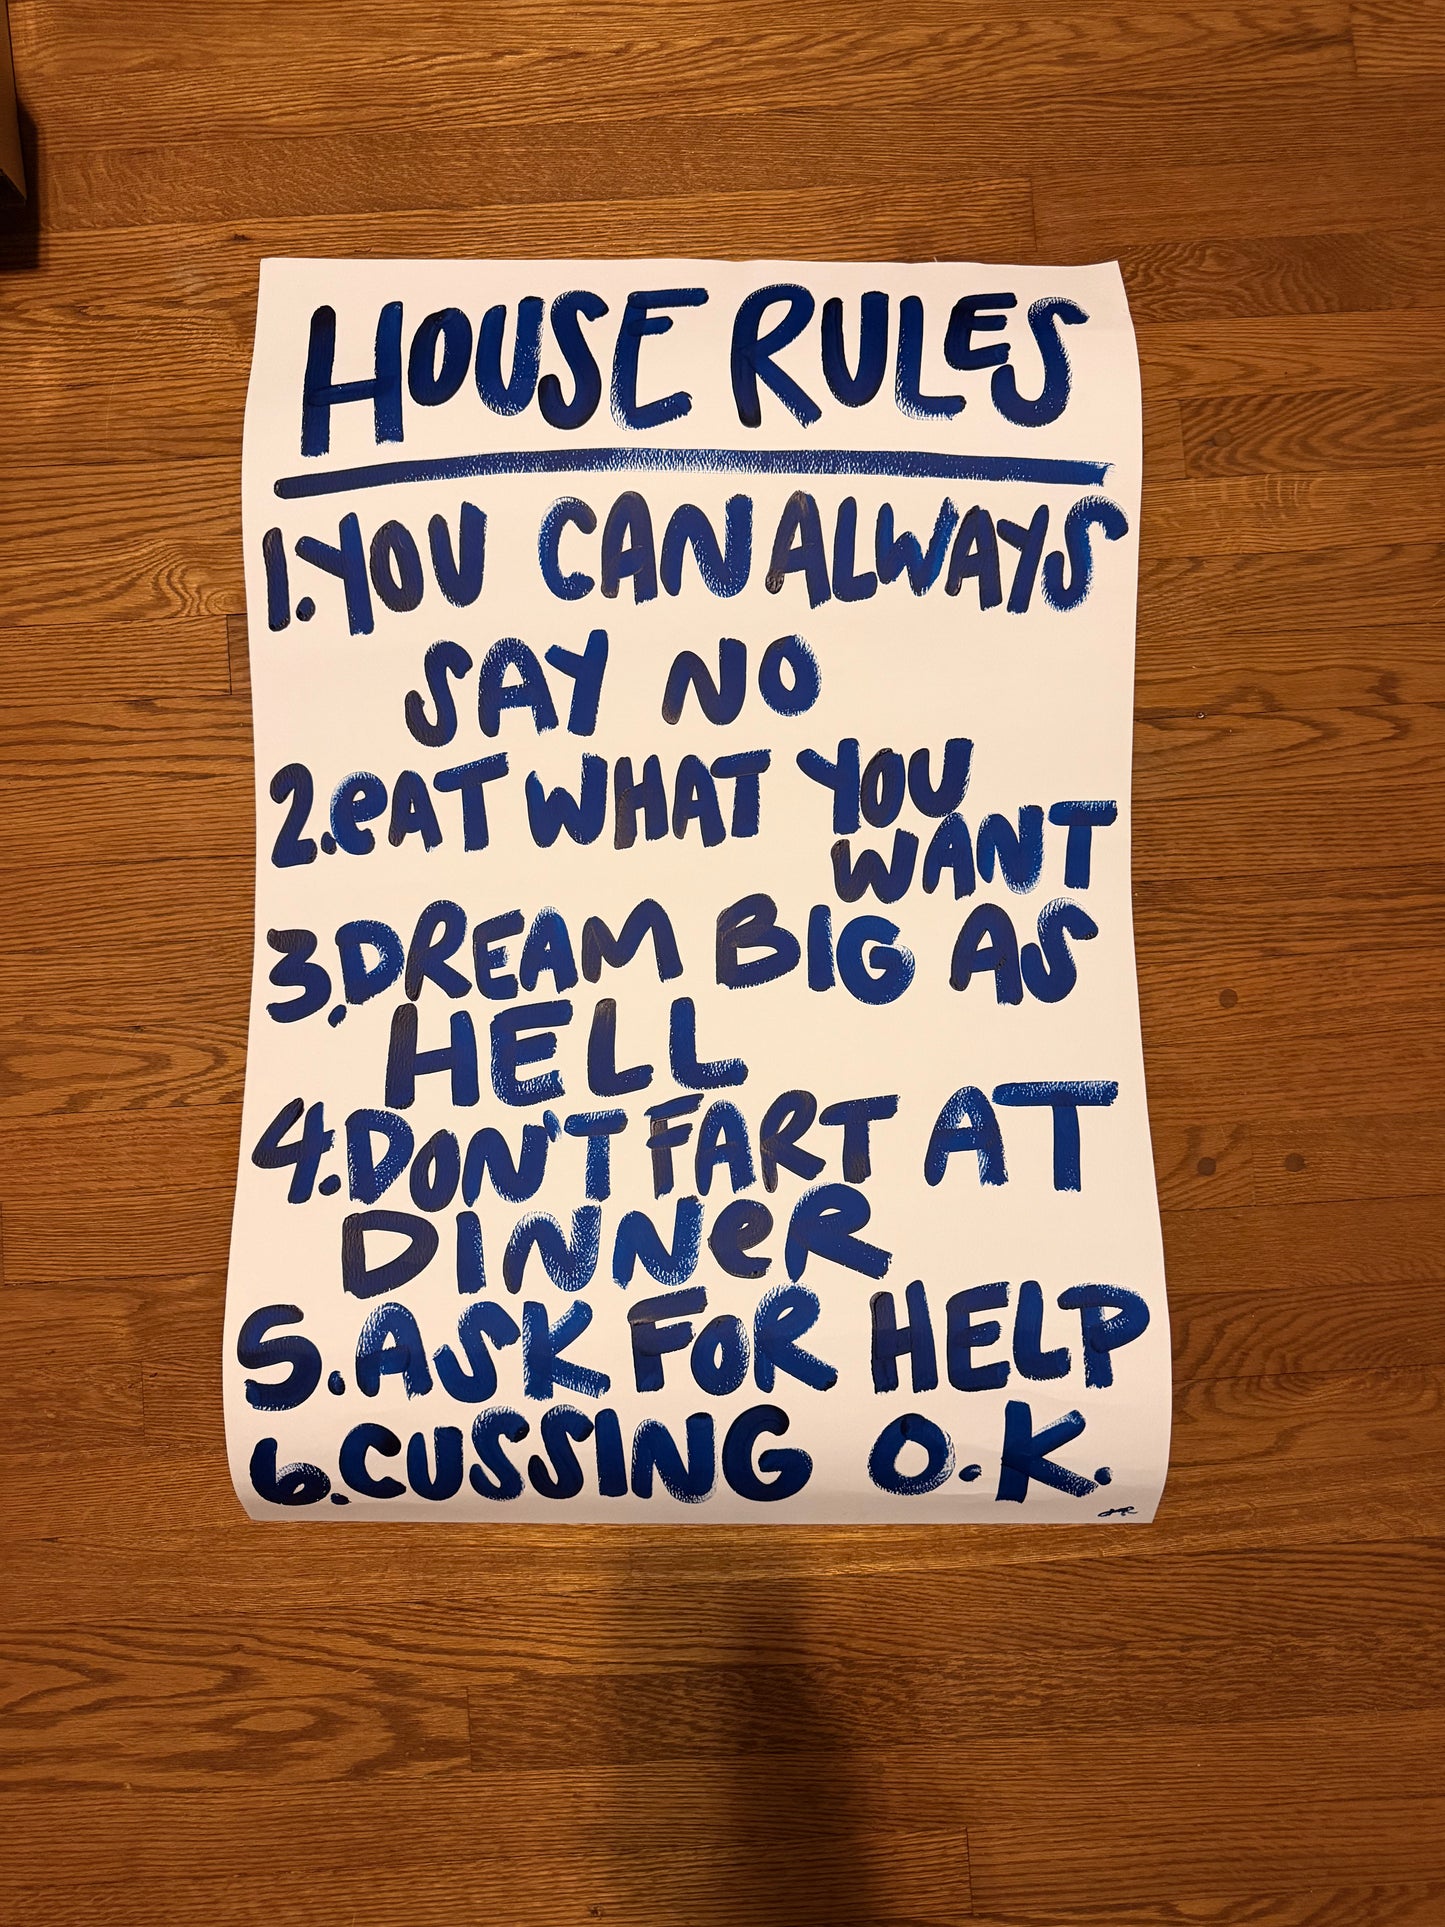 HOUSE RULES
1. YOU CAN ALWAYS
SAY NO
2. eAT WHAT YOU
WANT
3. DREAM BIG AS
HELL
4. DON'T FART AT
DINNeR
5. ASK FOR HELP
6. CUSSING O.K.